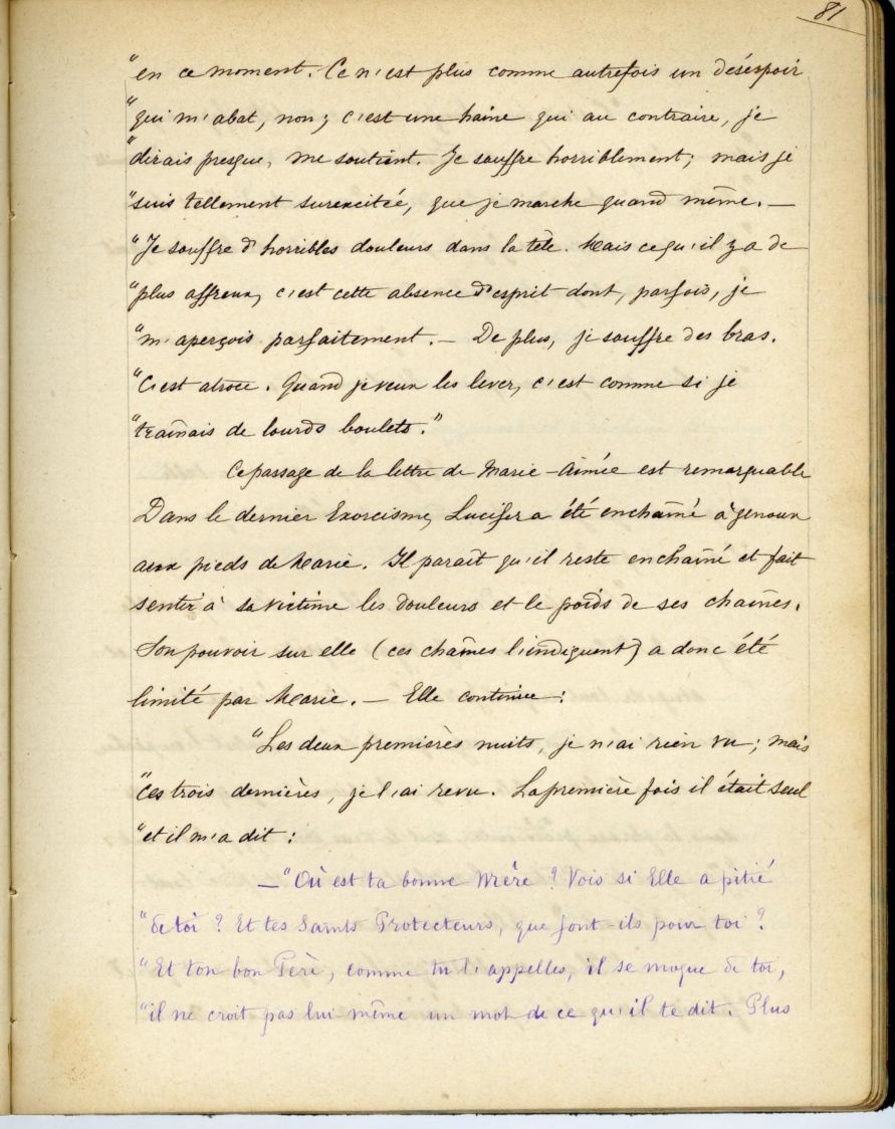 81
"en ce moment. Ce n'est plus comme autrefois un désespoir
"qui m'abat, non; c'est une haine qui au contraire, je
"dirais presque, me soutient. Je souffre horriblement; mais je
"suis tellement surexcitée, que je marche quand même. —
"Je souffre d'horribles douleurs dans la tête. Mais ce qu'il y a de
"plus affreux, c'est cette absence d'esprit dont, parfois, je
"m'aperçois parfaitement. — De plus, je souffre des bras.
"C'est atroce. Quand je veux les lever, c'est comme si je
"traînais de lourds boulets."
Ce passage de la lettre de Marie-Aimée est remarquable
Dans le dernier Exorcisme, Lucifer a été enchaîné à genoux
aux pieds de Marie. Il paraît qu'il reste enchaîné et fait
sentir à sa victime les douleurs et le poids de ses chaînes.
Son pouvoir sur elle (ces chaînes l'indiquent) a donc été
limité par Marie. — Elle continue:
"Les deux premières nuits, je n'ai rien vu; mais
"ces trois dernières, je l'ai revu. La première fois il était seul
"et il m'a dit:
—"Où est ta bonne Mère? Vois si Elle a pitié
"de toi? Et tes Saints Protecteurs, que font-ils pour toi?
"Et ton bon Père, comme tu l'appelles, il se moque de toi,
"il ne croit pas lui-même un mot de ce qu'il te dit. Plus